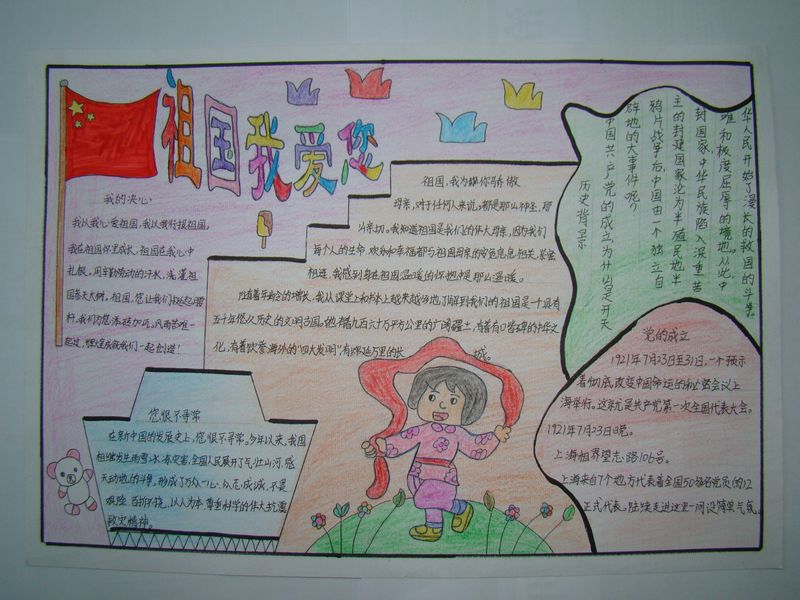 祖国我爱您
我的决心
我以我心爱祖国,我以我行报祖国。
我在祖国怀里成长,祖国在我心中
扎根,用辛勤劳动的汗水,浇灌祖
国参天大树。祖国,您让我们挺起
杆,我们为您添砖加瓦。风雨苦难一
起过,辉煌成就我们一起创造!
祖国,我为你骄傲
母亲,对于任何人来说,都是那么神圣,那
么亲切。我知道祖国是我们的伟大母亲,因为我们
每个人的生命、欢乐和幸福都与祖国母亲的安危息息相关、紧密
相连,我感到身在祖国温暖的怀抱是那么温暖。
随着年龄的增长,我从课堂上和书本上越来越多地了解到我们的祖国是一个具有
五千年悠久历史的文明古国。她有着九百六十万平方公里的广阔疆土,有着有口皆碑的中华文
化,有着饮誉海外的“四大发明”有绵延万里的长城。
历史背景
中国共产党的成立为什么是开天
辟地的大事件呢?
鸦片战争后,中国由一个独立自
主的封建国家沦为半殖民地半
封国家,中华民族陷入深重苦
难和极度屈辱的境地。从此中
华人民开始了漫长的救国的斗争。
党的成立
1921年7月23日至31日,一个预示
着彻底改变中国命运的秘密会议上
海举行。这就是共产党第一次全国代表大会。
1921年7月23日晚。
上海租界望志路106号。
上海来自7个地方代表着全国50多名党员的12
正式代表,陆续走进这里一间设简单气氛
您恨不寻常
在新中国的发展史上,您恨不寻常。今年以来,我国
相继发生雨雪冰冻灾害,全国人民展开了气壮山河、感
天动地的斗争,形成了万众一心、众志成城,不畏
艰险、百折不挠,以人为本、尊重科学的伟大抗震
救灾精神。